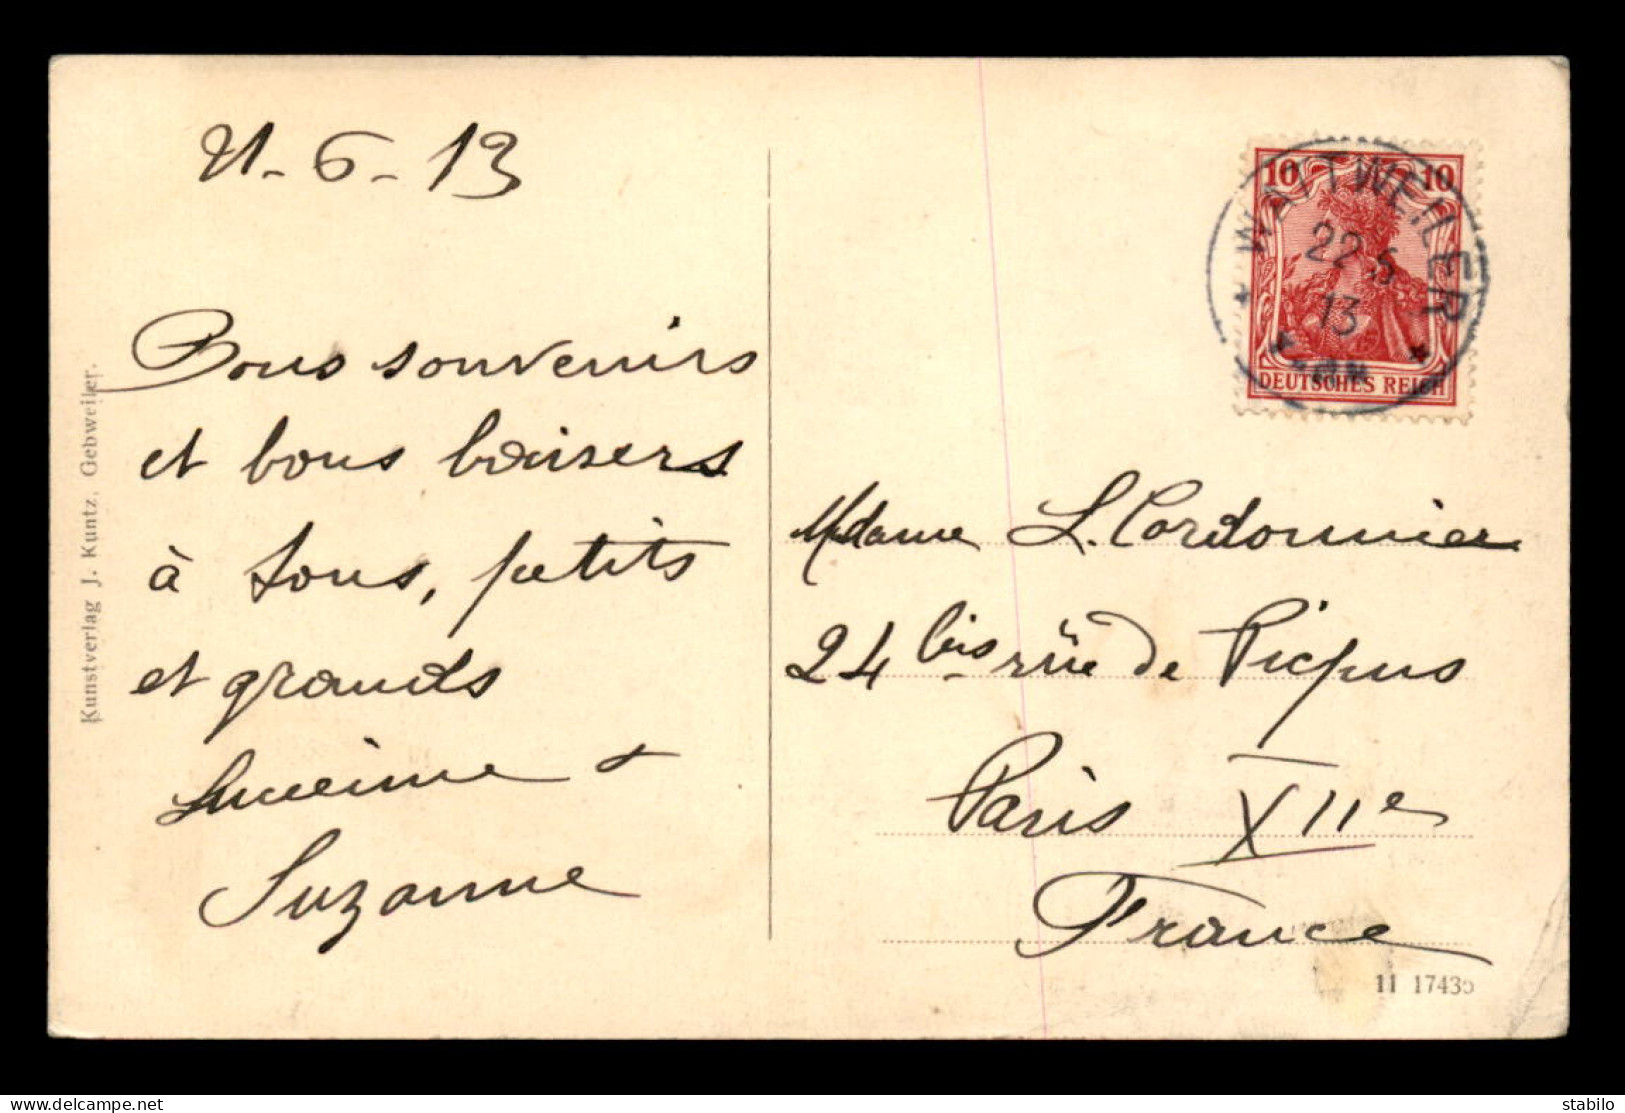 21-6-13
Bons souvenirs
et bons baisers
à tous, petits
et grands
Lucienne +
Suzanne
Kunstverlag J. Kuntz, Gebweiler.
10 10
DEUTSCHES REICH
WATTWEILER
22 5
13
Madame L. Cordonnier
24 bis rue de Picpus
Paris XIIe
France
11 1743
stabilo